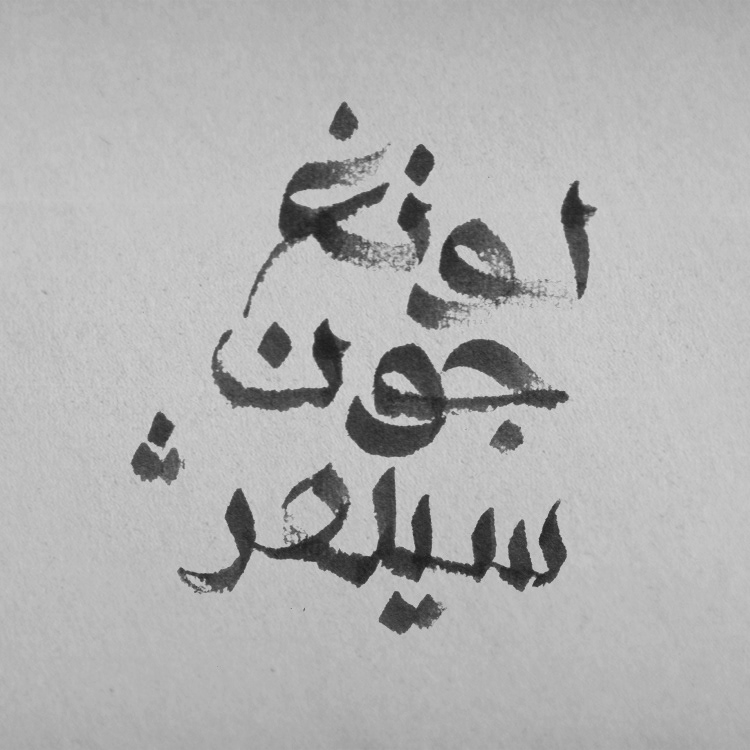 لونغ
جون
سيلڤر